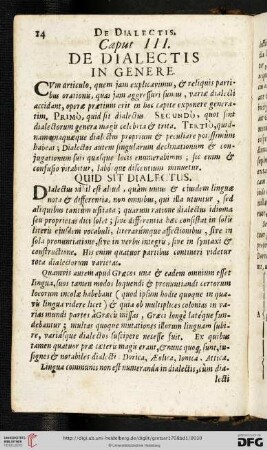 14 DE DIALECTIS.
Caput III.
DE DIALECTIS
IN GENERE.
CUm articulo, quem jam explicavimus, & reliquis parti-
bus orationis, quas jam aggressuri sumus, variæ dialecti
accidant, operæ prætium erit in hoc capite exponere genera-
tim, PRIMO, quid sit dialectus SECUNDO, quot sint
dialectorum genera magis celebria & trita, TERTIO, quid-
namunaquæque dialectus proprium & peculiare possessivum
habeat; Dialectos autem singularum declinationum & con-
jugationum suis quasque locis enumerabimus; sic enim &
confusio vitabitur, labor que discentium minuetur.
QUID SIT DIALECTUS.
DIalectus nihil est aliud, quàm unius & ejusdem linguæ
nota & differentia, non omnibus, qui illa utuntur, sed
aliquibus tantùm usitata; quarum ratione dialectus idioma
seu proprietas dici solet; sive differentia hæc consistat in solis
literis ejusdem vocabuli, literarumque affectionibus, sive in
sola pronuntiatione, sive in verbis integris, sive in syntaxi &
constructione. His enim quatuor partibus contineri videtur
tota dialectorum varietas.
Quamvis autem apud Græcos una & eadem omnium esset
lingua, suos tamen modos loquendi & pronuntiandi certorum
locorum incolæ habebant (quod ipsum hodie quoque in qua-
vis lingua videre licet) & quia ob multiplices colonias in va-
rias mundi partes à Græcis missas, Græci longè latèque fun-
debantur; multas quoque mutationes illarum linguam subi-
re, variasque dialectos suscipere necesse fuit. Ex quibus
tamen quatuor præ cæteris magis erant, & nunc quoq; sunt, in-
signes & notabiles dialecti: Dorica, Æolica, Ionica, Attica.
Lingua communis non est numeranda in dialectis, cùm dia-
lecti
http://digi.ub.uni-heidelberg.de/diglit/gretser1708bd1/0038
DFG